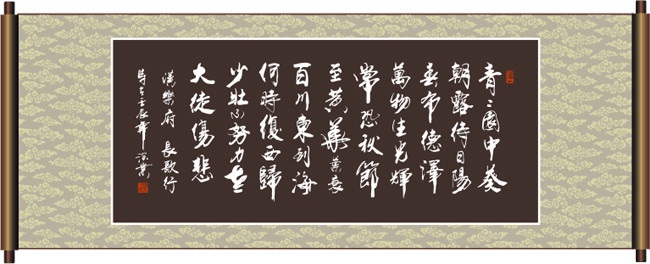 青〻園中葵
朝露待日陽
春布德澤
萬物生光輝
常恐秋節
至黄華葉衰
百川東到海
何時復西歸
少壯不努力老
大徒傷悲
漢樂府 長歌行
時在壬辰年